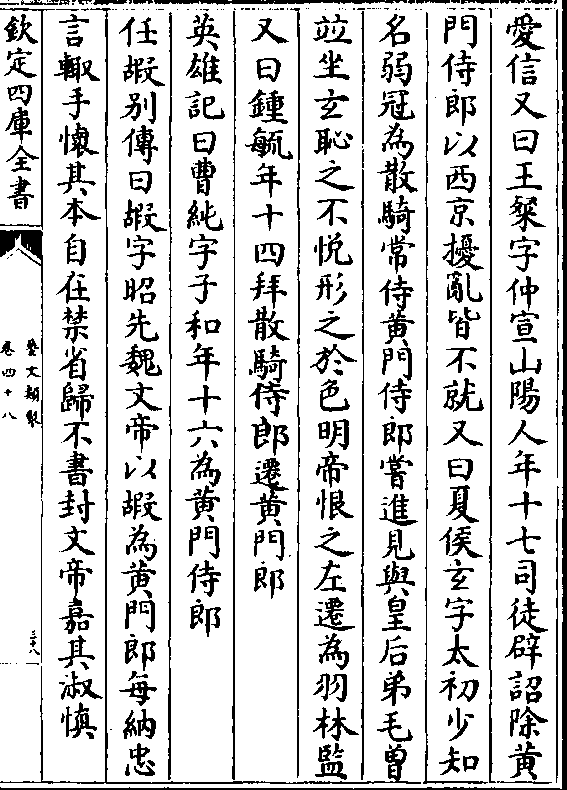 愛信又曰王粲字仲宣山陽人年十七司徒辟詔除黄
門侍郎以西京擾亂皆不就又曰夏侯玄字太初少知
名弱冠為散騎常侍黄門侍郎嘗進見與皇后弟毛曽
竝坐玄恥之不悦形之於色明帝恨之左遷為羽林監
又曰鍾毓年十四拜散騎侍郎遷黄門郎
英雄記曰曹純字子和年十六為黄門侍郎
任嘏别傳曰嘏字昭先魏文帝以嘏為黄門郎每納忠
言輙手懷其本自在禁省歸不書封文帝嘉其淑慎
欽定四庫全書
藝文類聚
卷四十八
三十八